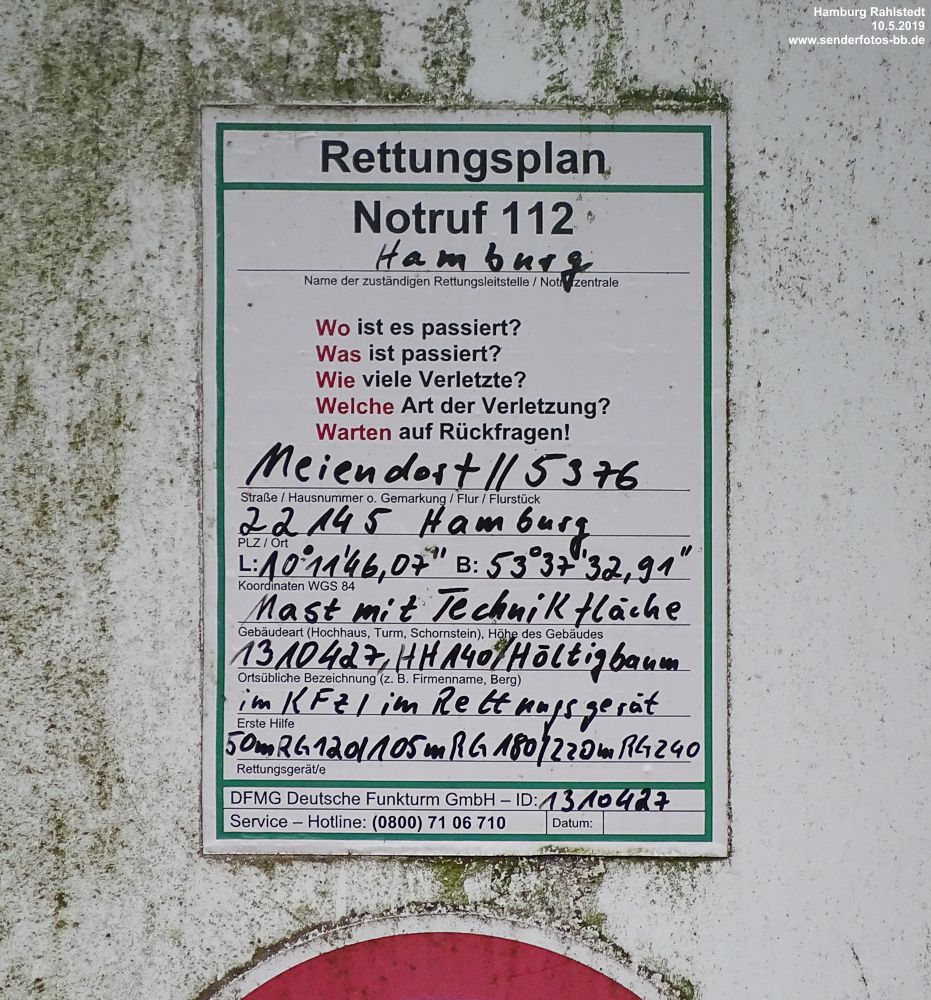 Hamburg Rahlstedt
10.5.2019
www.senderfotos-bb.de
Rettungsplan
Notruf 112
Hamburg
Name der zuständigen Rettungsleitstelle / Notrufzentrale
Wo ist es passiert?
Was ist passiert?
Wie viele Verletzte?
Welche Art der Verletzung?
Warten auf Rückfragen!
Meiendorf // 5376
Straße / Hausnummer o. Gemarkung / Flur / Flurstück
22145 Hamburg
PLZ / Ort
L: 10°11'46,07" B: 53°37'32,91"
Koordinaten WGS 84
Mast mit Technikfläche
Gebäudeart (Hochhaus, Turm, Schornstein), Höhe des Gebäudes
1310427, HH140/Höltigbaum
Ortsübliche Bezeichnung (z. B. Firmenname, Berg)
im KFz / im Rettungsgerät
Erste Hilfe
50m RG120/105m RG180/220m RG240
Rettungsgerät/e
DFMG Deutsche Funkturm GmbH – ID: 1310427
Service – Hotline: (0800) 71 06 710 Datum: